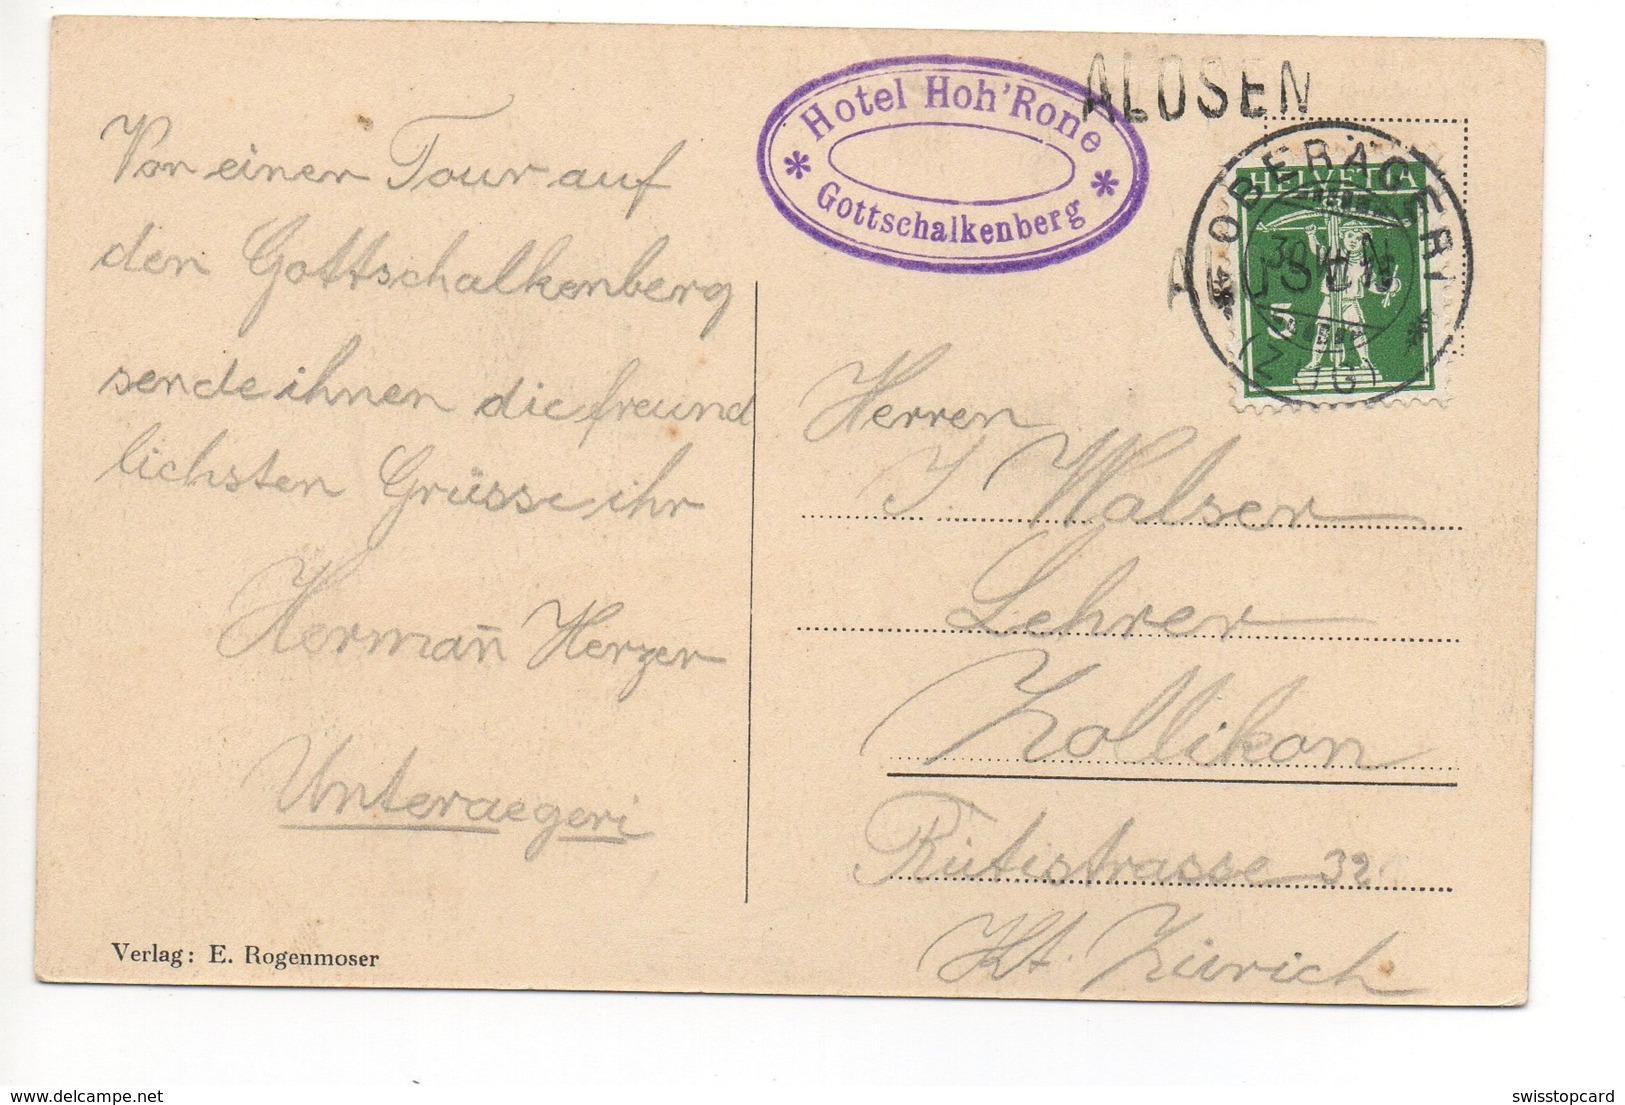 Von einer Tour auf
den Gottschalkenberg
sende ihnen die freund
lichsten Grüsse ihr
Hermañ Herzer
Unteraegeri
Verlag: E. Rogenmoser
* Hotel Hoh'Rone *
Gottschalkenberg
ALOSEN
OBERÄGERI
(ZUG)
HELVETIA
5
Herren
J. Walser
Lehrer
Zollikon
Rütistrasse 32
Kt. Zürich
delcampe.net
swisstopcard